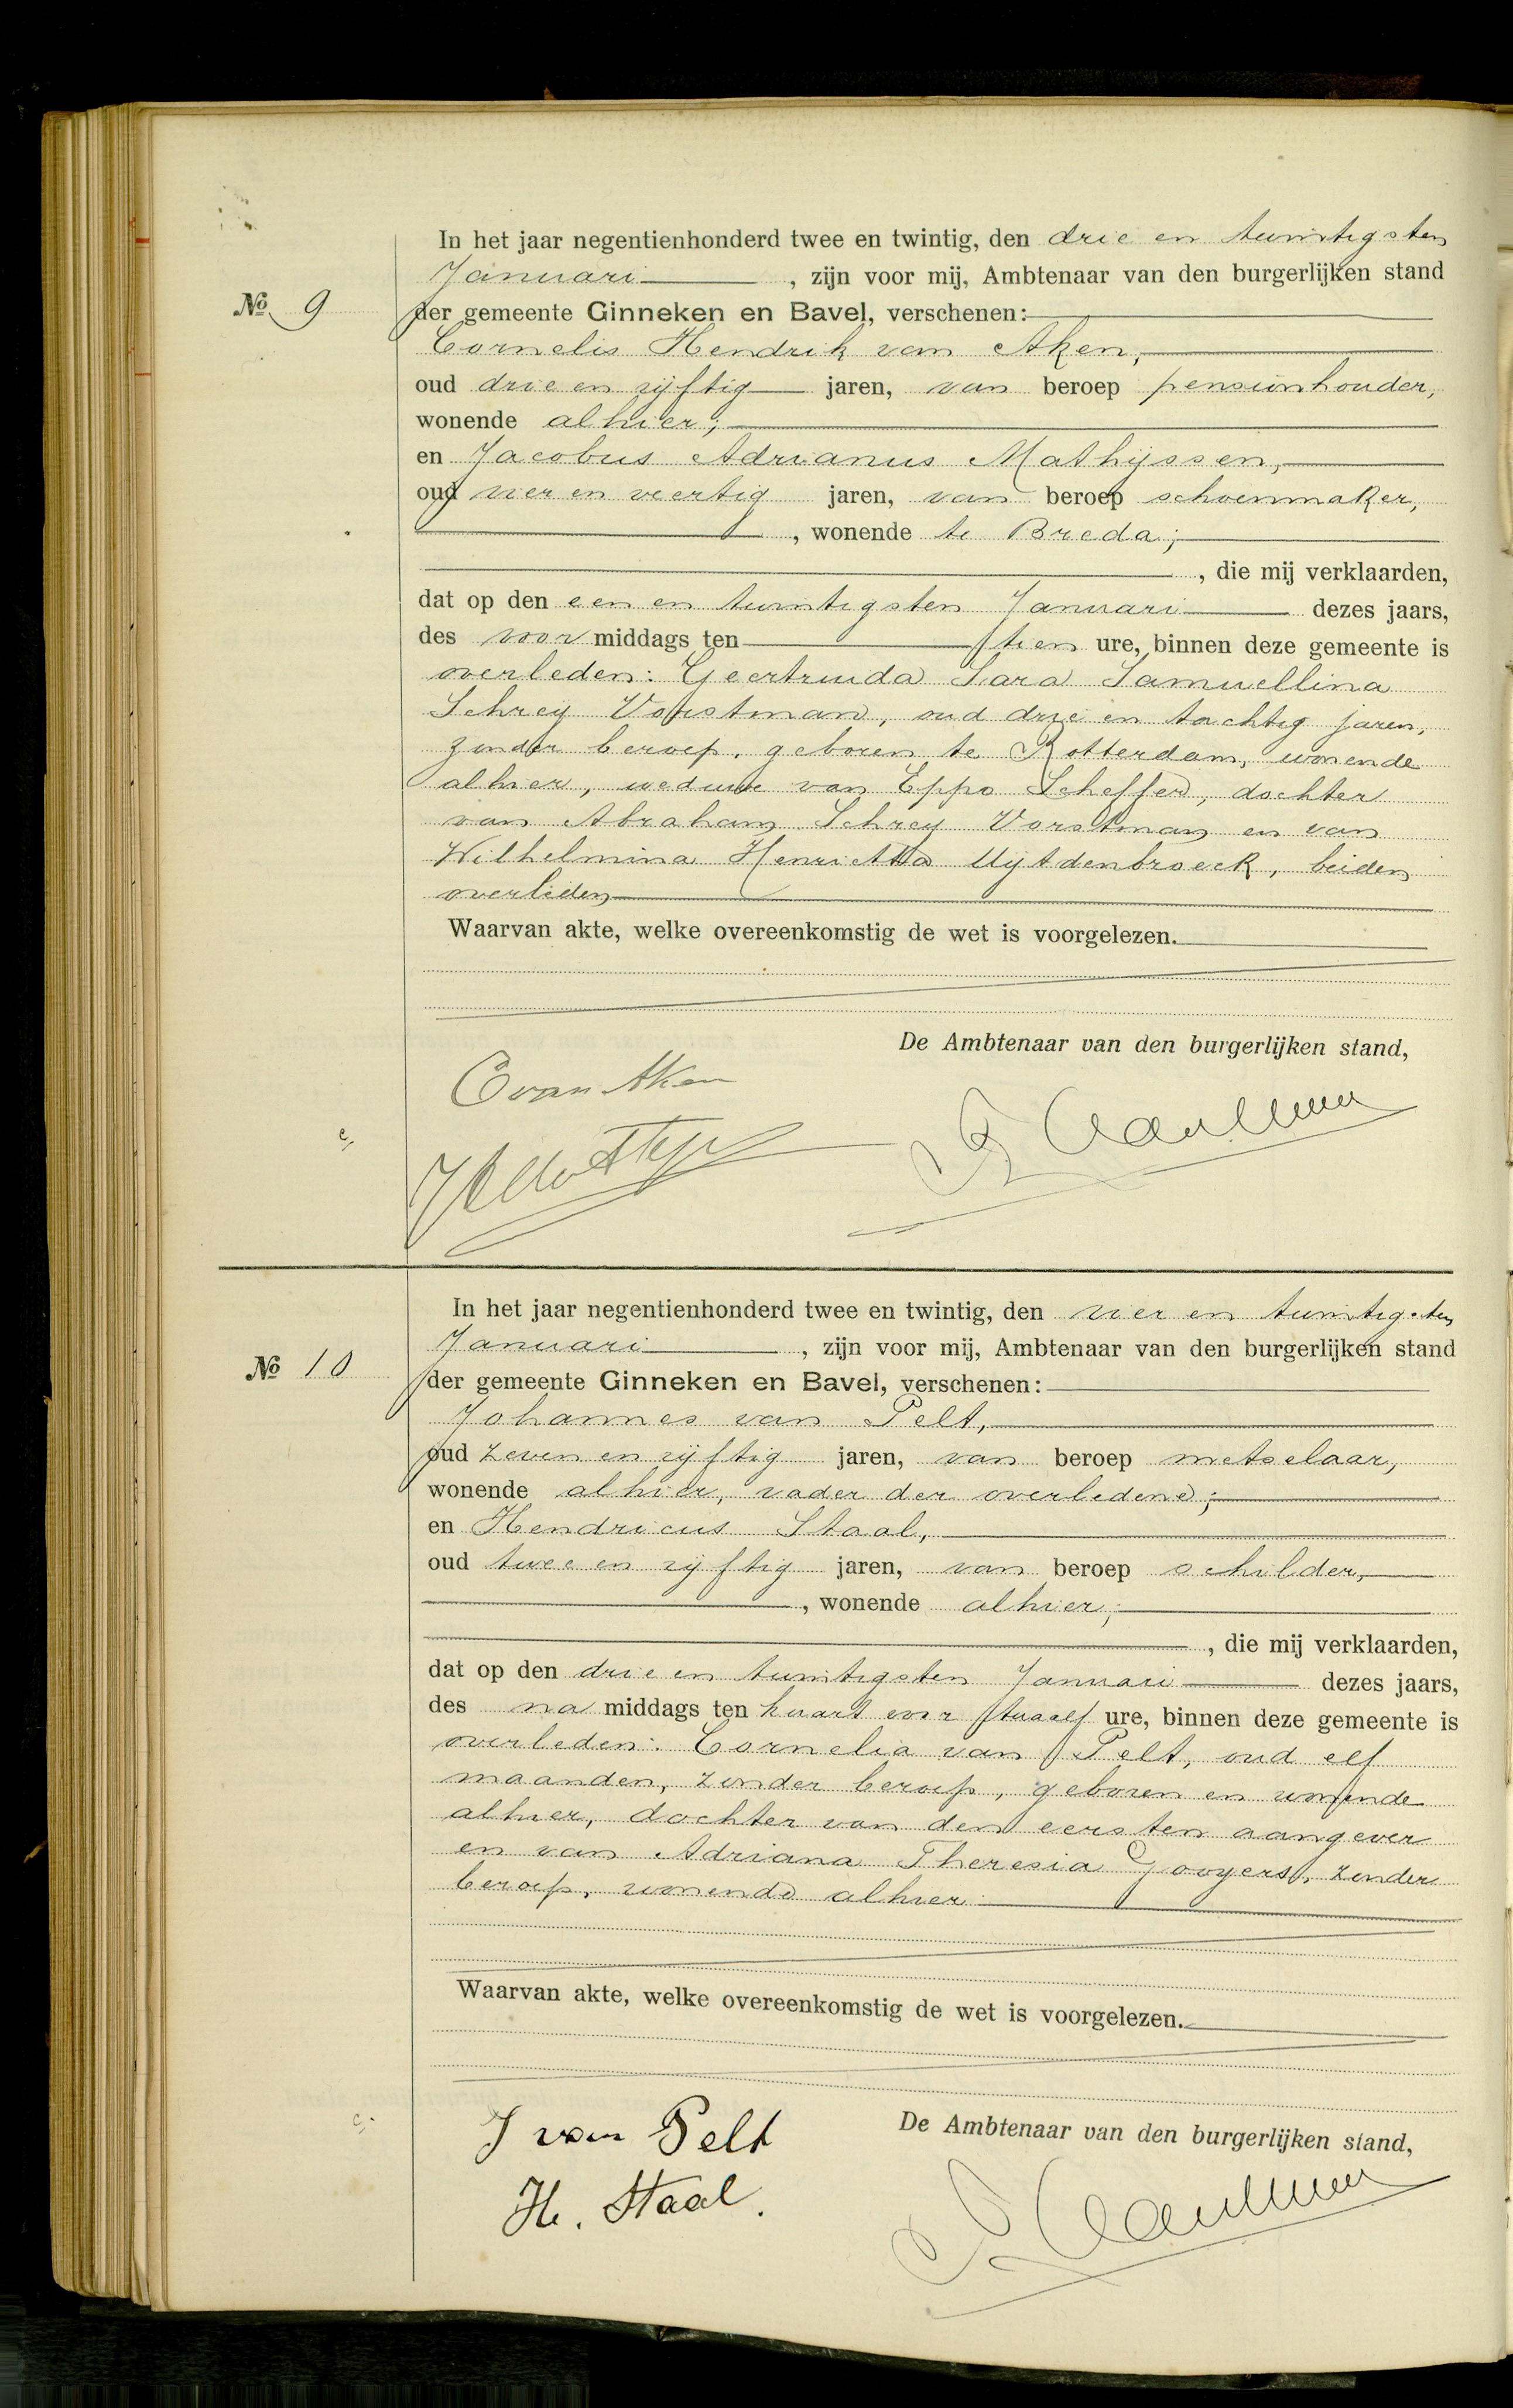 In het jaar negentienhonderd twee en twintig, den drie en twintigsten
Januari, zijn voor mij, Ambtenaar van den burgerlijken stand
No 9
der gemeente Ginneken en Bavel, verschenen:
Cornelis Hendrik van Aken,
oud drie en vijftig jaren, van beroep pensionhouder,
wonende alhier;
en Jacobus Adrianus Mathijssen,
oud vier en veertig jaren, van beroep schoenmaker,
, wonende te Breda;
, die mij verklaarden,
dat op den een en twintigsten Januari dezes jaars,
des voor middags ten tien ure, binnen deze gemeente is
overleden: Geertruida Sara Samuellina
Schrey Vorstman, oud drie en tachtig jaren,
zonder beroep, geboren te Rotterdam, wonende
alhier, weduwe van Eppo Scheffer, dochter
van Abraham Schrey Vorstman en van
Wilhelmina Henrietta Uijtdenbroeck, beiden
overleden
Waarvan akte, welke overeenkomstig de wet is voorgelezen.
De Ambtenaar van den burgerlijken stand,
C van Aken
In het jaar negentienhonderd twee en twintig, den vier en twintigsten
Januari, zijn voor mij, Ambtenaar van den burgerlijken stand
No 10
der gemeente Ginneken en Bavel, verschenen:
Johannes van Pelt,
oud zeven en vijftig jaren, van beroep metselaar,
wonende alhier, vader der overledene;
en Hendricus Staal,
oud twee en vijftig jaren, van beroep schilder,
, wonende alhier;
, die mij verklaarden,
dat op den drie en twintigsten Januari dezes jaars,
des na middags ten kwart voor twaalf ure, binnen deze gemeente is
overleden: Cornelia van Pelt, oud elf
maanden, zonder beroep, geboren en wonende
alhier, dochter van den eersten aangever
en van Adriana Theresia Gooyers, zonder
beroep, wonende alhier
Waarvan akte, welke overeenkomstig de wet is voorgelezen.
De Ambtenaar van den burgerlijken stand,
J van Pelt
H. Staal.